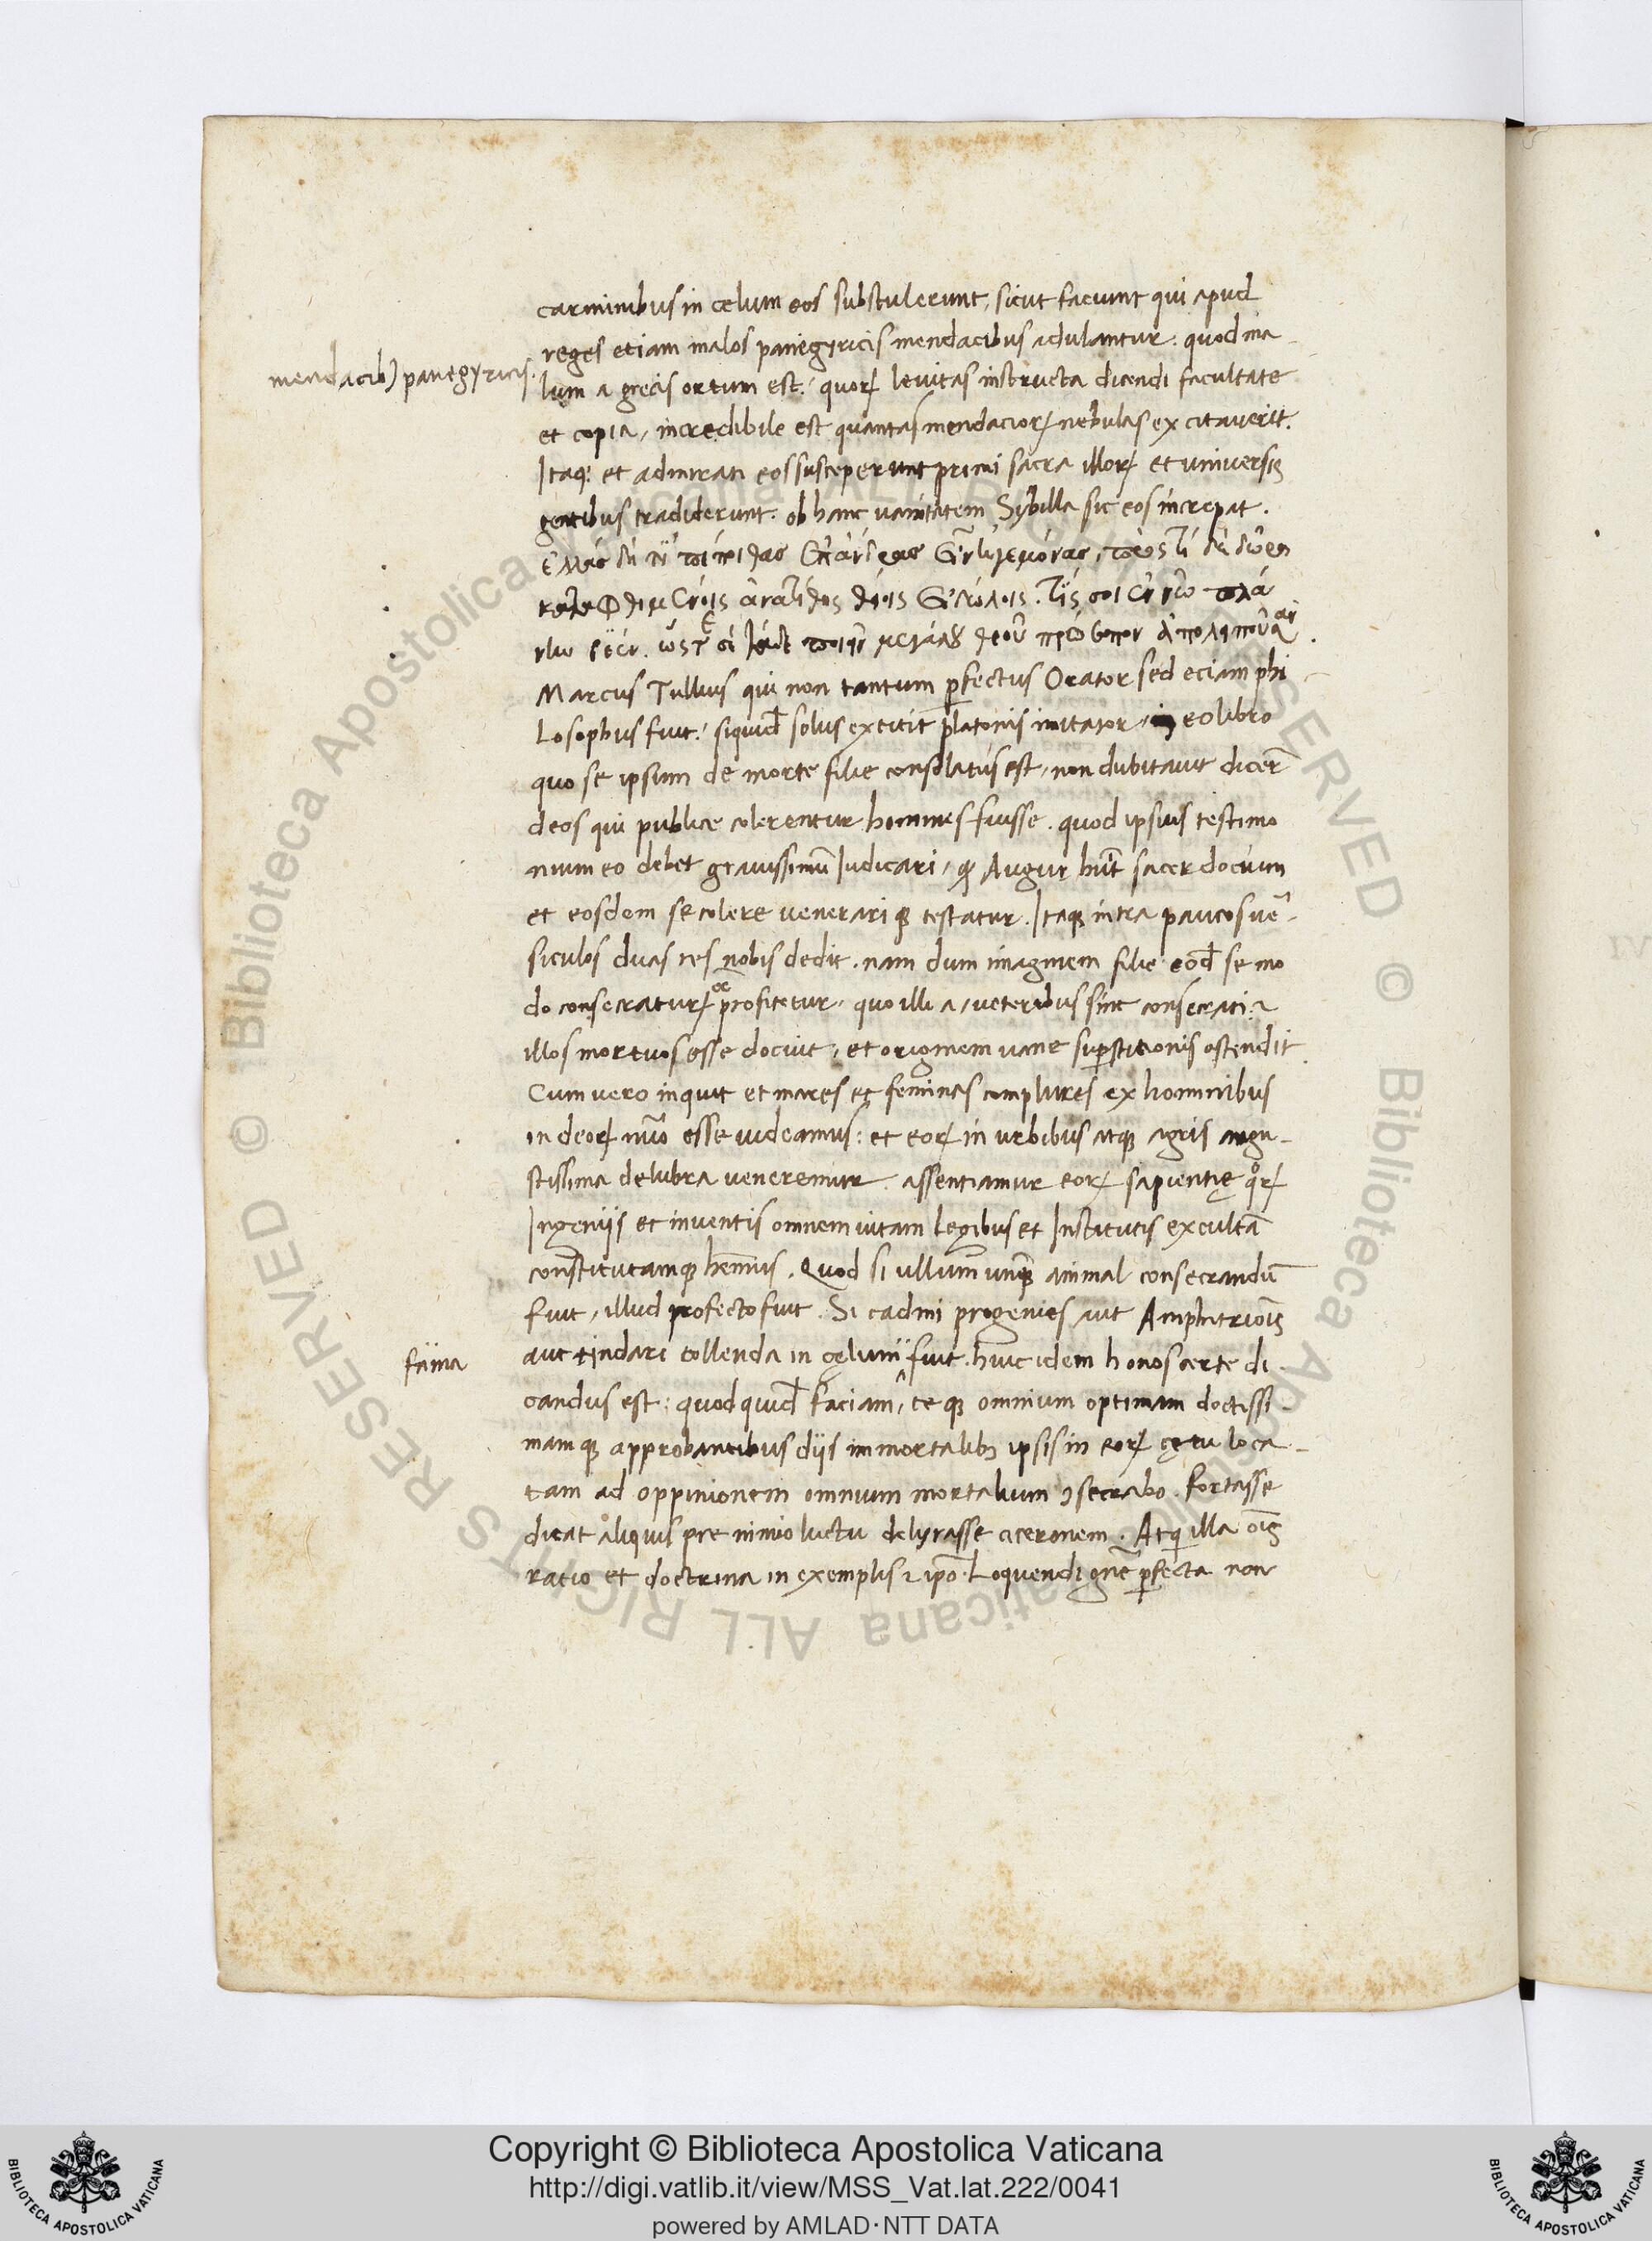 carminibus in celum eos substulerunt, sicut faciunt qui apud
reges etiam malos panegyricis mendacibus adulantur: quod ma-
mendacib) panegyricis.
lum a grecis ortum est: quoꝝ levitas instructa dicendi facultate
et copia, incredibile est quantas mendacioꝝ nebulas excitaverit.
Itaqꝫ et admirati eos susceperunt primi sacra illoꝝ et universis
gentibus tradiderunt. ob hanc vanitatem Sybilla sic eos increpat.
Marcus Tullius qui non tantum ꝑfectus Orator sed eciam phi
losophus fuit: siquid̄ solus extitit platonis imitator, eo libro
quo se ipsum de morte filie consolatus est, non dubitavit dicer̄
deos qui publice colerentur homines fuisse. quod ipsius testimo
nium eo debet gravissimū Iudicari, ꝙ Augur hūit sacerdocium
et eosdem se colere venerari qꝫ testatur. Itaqꝫ intra paucos vē-
siculos duas res nobis dedit. nam dum imaginem filie eod̄ se mo
do consecraturꝝ profitetur, quo illi a veteribus sint consecrati: ⁊
illos mortuos esse docuit, et originem vane suꝑstitionis ostendit.
Cum vero inquit et mares et feminas complures ex hominibus
in deoꝝ nūo esse videamus: et eoꝝ in urbibus atqꝫ agris augu-
stissima delubra veneremur. assentiamur eoꝝ sapientię qͦꝝ
Ingeniis et inventis omnem vitam legibus et Institutis excultā
constitutamqꝫ hēmus. Quod si ullum unqꝫ animal consecrandū
fuit, illud profecto fuit. Si cadmi progenies aut Amphitrionis
fama
aut tindari tollenda in cęlum fuit. huic idem honos certe di-
candus est: quod quid̄ faciam, te qꝫ omnium optimam doctissi-
mam qꝫ approbantibus diis immortalibꝫ ipsis in eoꝝ cętu loca-
tam ad oppinionem omnium mortalium ꝯsecrabo. Fortasse
dicat aliquis pre nimio luctu delyrasse ciceronem. Atqui illa oīs
ratio et doctrina in exemplis ⁊ ipō Loquendi gn̄e ꝑfecta non
Copyright © Biblioteca Apostolica Vaticana
http://digi.vatlib.it/view/MSS_Vat.lat.222/0041
powered by AMLAD·NTT DATA
BIBLIOTECA APOSTOLICA VATICANA
BIBLIOTECA APOSTOLICA VATICANA
© Biblioteca Apostolica Vaticana ALL RIGHTS RESERVED
© Biblioteca Apostolica Vaticana ALL RIGHTS RESERVED